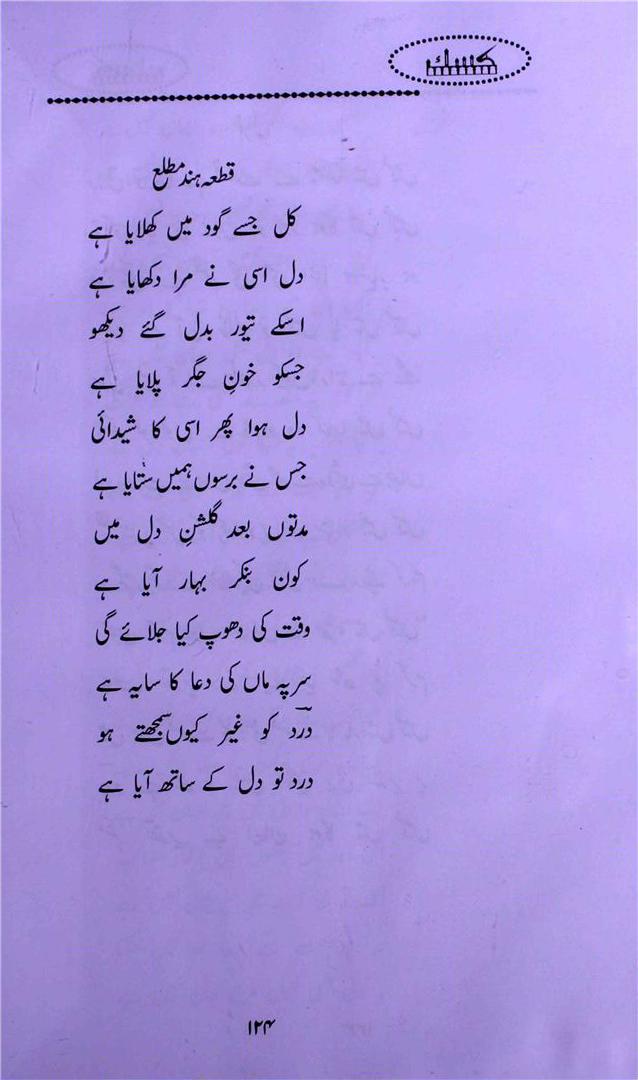 کسک
قطعہ بند مطلع
کل جسے گود میں کھلایا ہے
دل اسی نے مرا دکھایا ہے
اسکے تیور بدل گئے دیکھو
جسکو خونِ جگر پلایا ہے
دل ہوا پھر اسی کا شیدائی
جس نے برسوں ہمیں ستایا ہے
مدتوں بعد گلشنِ دل میں
کون بنکر بہار آیا ہے
وقت کی دھوپ کیا جلائے گی
سر پہ ماں کی دعا کا سایہ ہے
درد کو غیر کیوں سمجھتے ہو
درد تو دل کے ساتھ آیا ہے
۱۲۴